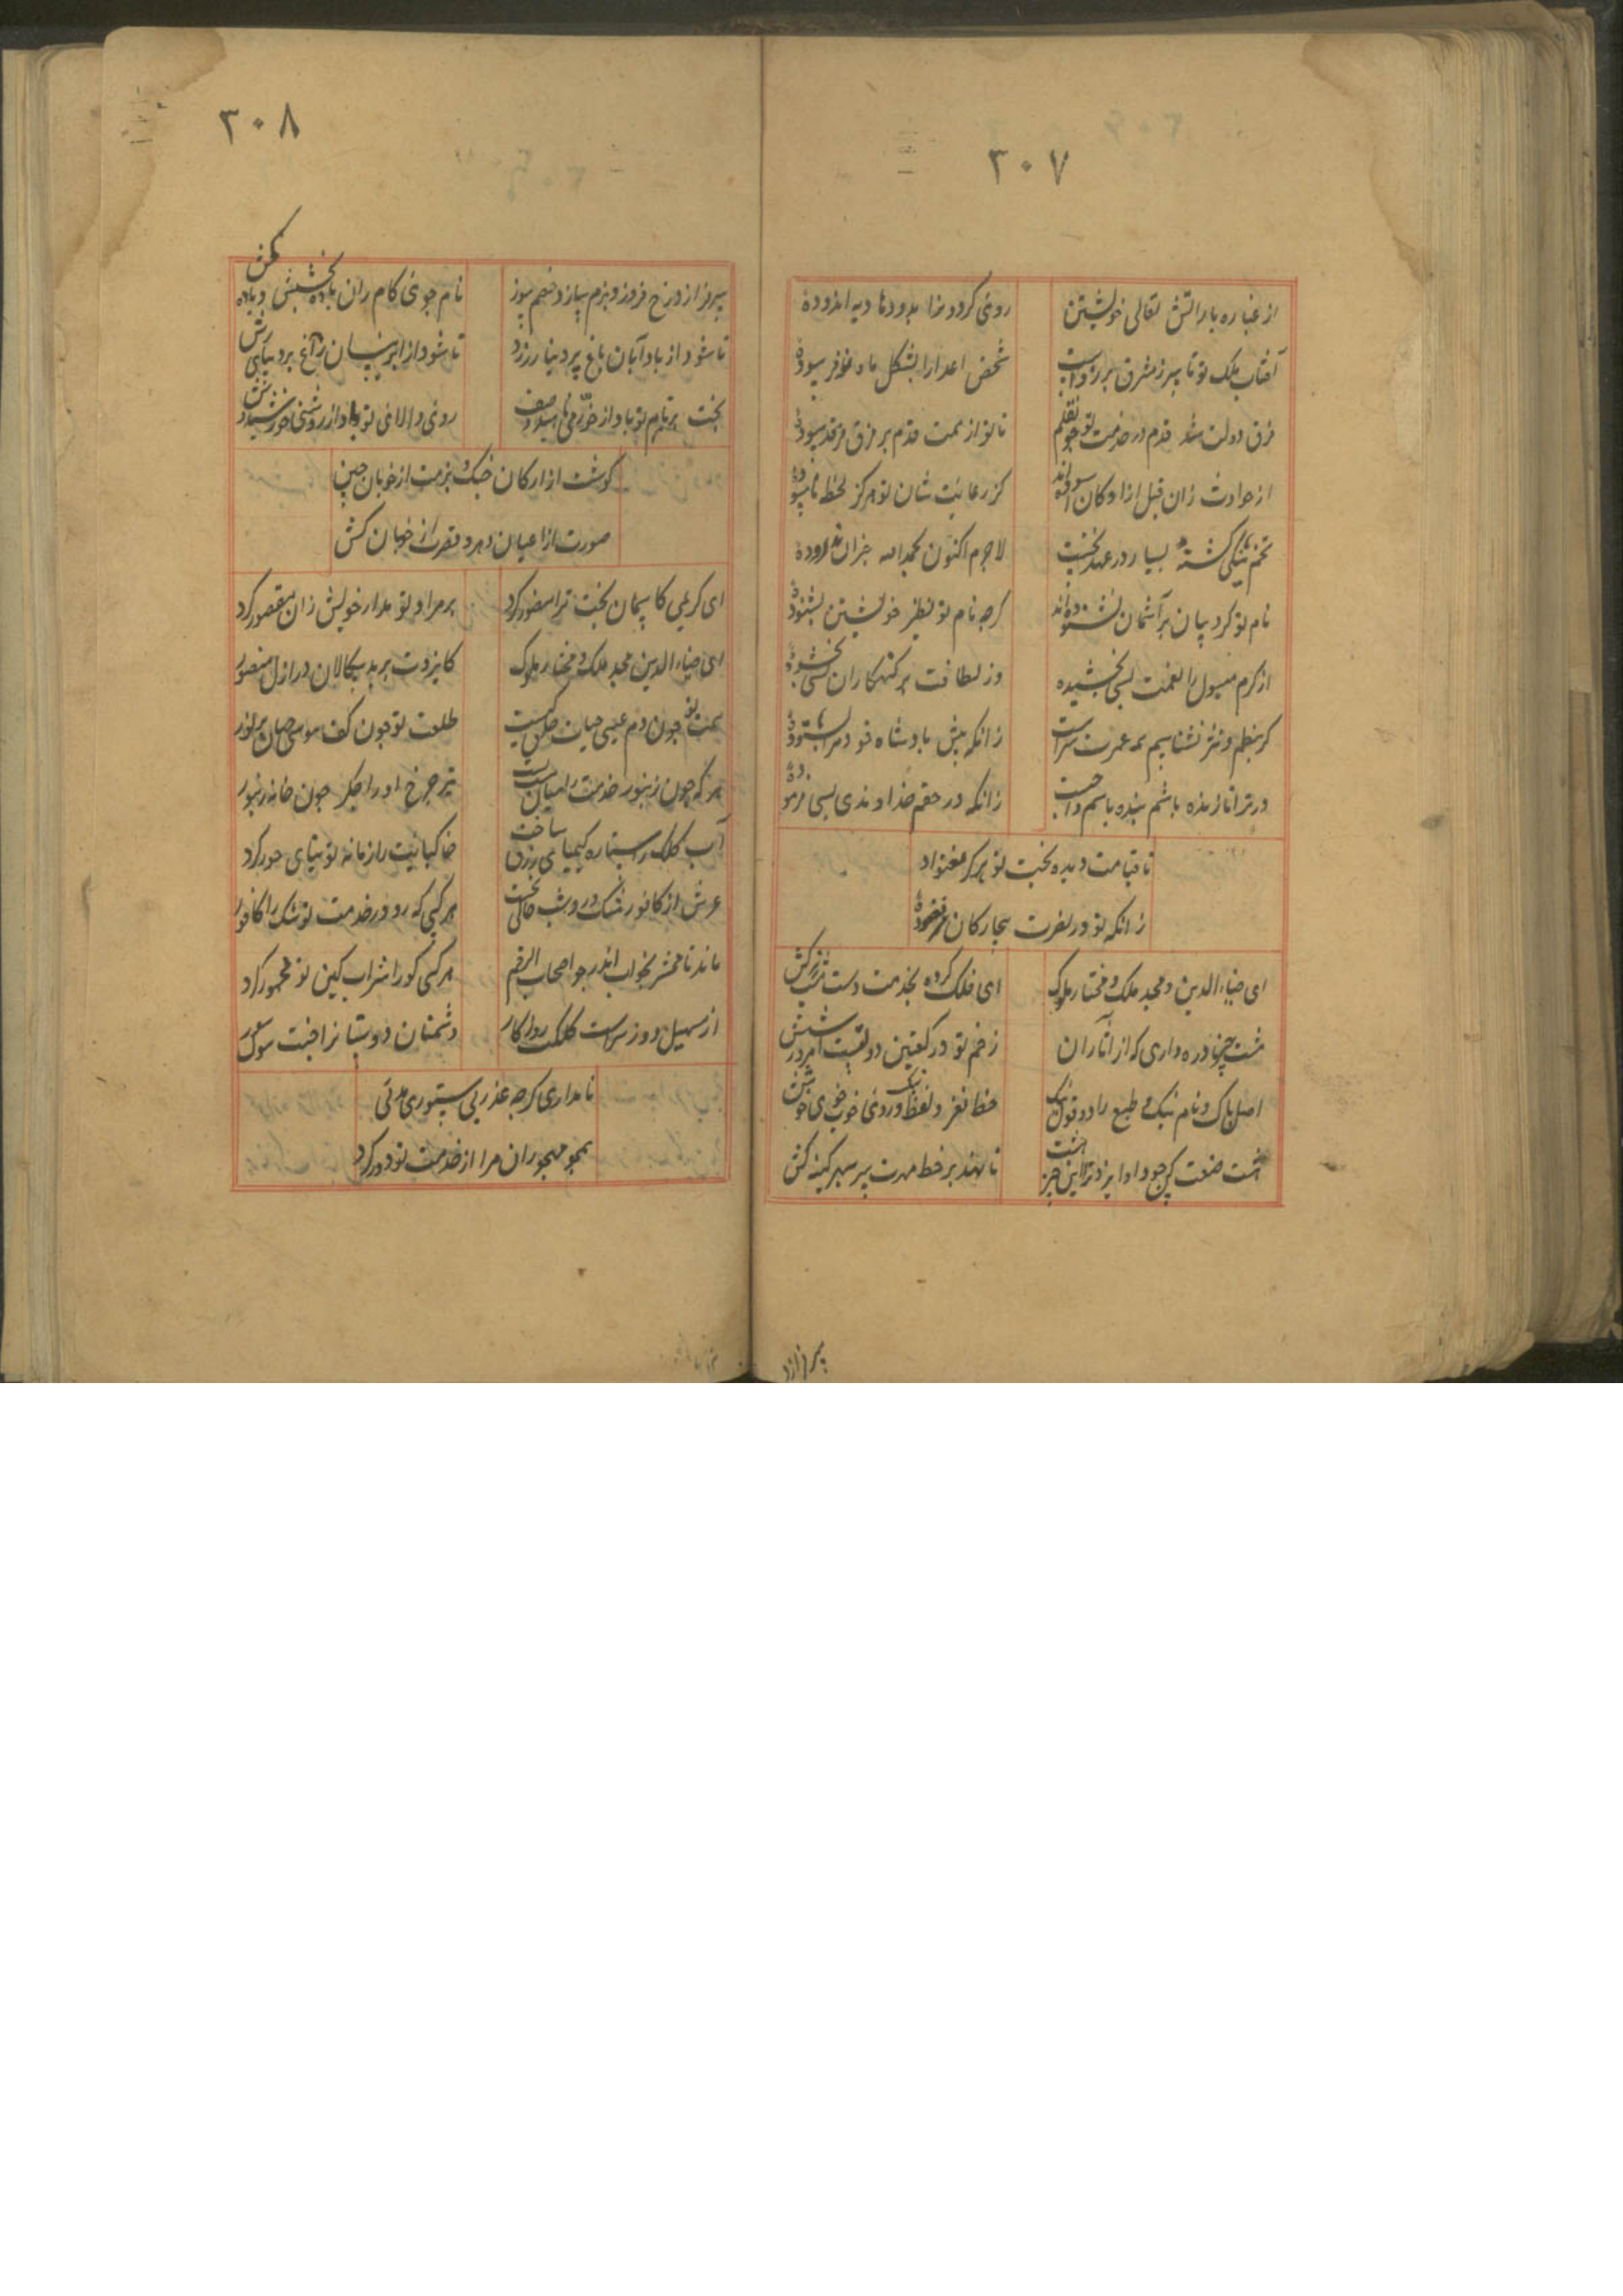 ۳۰۷
از غبار و باد و آتش تعالی خویشتن
روی گردون را بدودها دیه اندوده
آفتاب ملک تو تا سر ز مشرق برزدست
شخص اعدا را بشکل ماه نو فرسوده
فرق دولت شد قدم در خدمت تو چون قلم
تا تو از همت قدم بر فرق فرقد سوده
از حوادث زان قبل آزادگان آسوده‌اند
کز رعایت شان تو هرگز لحظه ناسوده
تخم نیکی کشته بسیار در عهد نخست
لاجرم اکنون بحمدالله جزان ندروده
نام تو گرد بیان بر آسمان بشنوده‌اند
گرچه نام تو نظیر خویشتن نشنوده
از کرم مسول را نعمت بسی بخشیده
وز لطافت بر گنهکاران بسی بخشوده
گر بنظم و نثر نشناسیم همه عمرت سزاست
زانکه پیش پادشاه خود مرا بستوده
ور ترا تا زنده باشم بنده باشم واجبست
زانکه در حقم خداوندی بسی فرموده
تا قیامت دیده بخت تو هرگز مغنواد
زانکه تو در نصرت بیچارگان نغنوده
ای ضیاء الدین و مجد ملک و مختار ملوک
ای فلک کرده بخدمت دست پیشت زیر کش
هشت چیز نادره داری که از آثار آن
زخم تو در کعبتین دولتست امروز شش
اصل پاک و نام نیک و طبع راد و قول نیک
خط نغز و لفظ نیک و روی خوب و خوی خوش
هشت صنعت کن چو داد ایزد ترا این هشت چیز
تا نهد بر خط مهرت سر سپهر کینه کش
۳۰۸
سرفراز و رخ فروز و بزم ساز و خصم سوز
نام جوی و کام ران و باده بخش و باده کش
تا شود از باد آبان باغ پر دینار زرد
تا شود از ابر نیسان راغ پر دیبای رش
بخت پدرام تو باد از خرمی ناهید وصف
روی والای تو باد از روشنی خورشید وش
گوشت از ارکان جنگ و بزمت از خوبان چین
صورت از اعیان دهر و قصرت از خوبان کش
ای کریمی کاسمان بخت ترا منصور کرد
بر مراد تو مدار خویش زان مقصور کرد
ای ضیاء الدین مجد ملک و مختار ملوک
کایزدت بر بد سگالان در ازل منصور
همت تو چون دم عیسی حیات خلق گیست
طلعت تو چون کف موسی جهان پر نور
هر که چون زنبور خدمت را میان بست
تیر چرخ او را جگر چون خانه زنبور
آب کلک را ستاره کیمیای رزق ساخت
خاک پایت را زمانه توتیای حور کرد
عرش از کافور مشک در و شب خالی نخست
هر کسی که رو در خدمت تو مشک را کافور
ماند تا محشر بخواب اندر چو اصحاب الرقیم
هر کسی کو را شراب کین تو مخمور کرد
از سهیل دوز سراست کلکت روا کار
دشمنان دوستانرا جفت سوک و سور
نامداری گرچه عذر بی ستوری مدتی
همچو مهجوران مرا از خدمت تو دور کرد